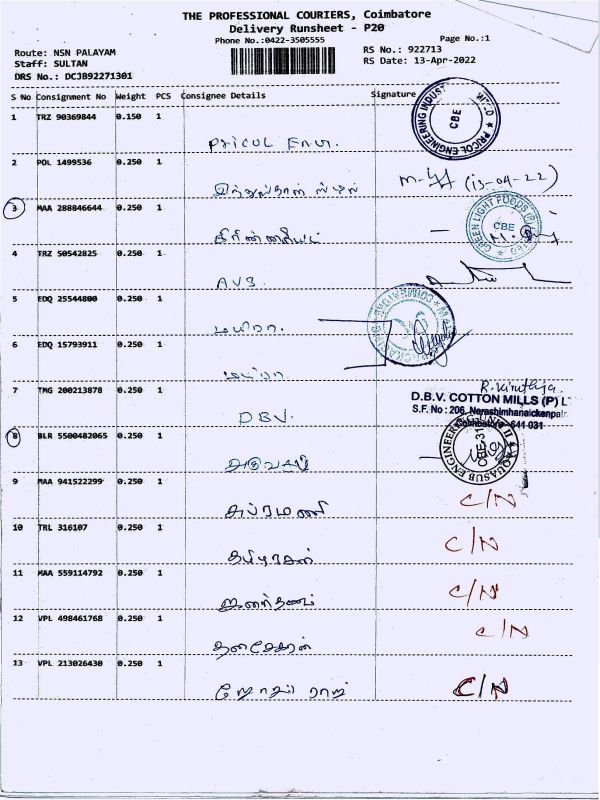 THE PROFESSIONAL COURIERS, Coimbatore
Delivery Runsheet - P20
Phone No.:0422-3505555
Page No.:1
Route: NSN PALAYAM
RS No.: 922713
Staff: SULTAN
RS Date: 13-Apr-2022
DRS No.: DCJB92271301
S No Consignment No Weight PCS Consignee Details Signature
1 TRZ 90369844 0.150 1
PRICOL ENGINEERING INDUSTRIES CBE
Pricol
2 POL 1499536 0.250 1
(13-04-22)
3 MAA 288846644 0.250 1
GREEN LIGHT FOODS (P) CBE
4 TRZ 50542825 0.250 1
AVS
5 EDQ 25544800 0.250 1
மயிரா.
COIMBATORE
6 EDQ 15793911 0.250 1
7 TMG 200213878 0.250 1
R. Kiruthija
D.B.V. COTTON MILLS (P) L
S.F. No : 206, Narashimhanaickenpala
Coimbatore - 641 031
DBV.
8 BLR 5500482065 0.250 1
AQUASUB ENGINEERING UNIT II CBE-31
9 MAA 941522299 0.250 1
சுப்ரமணி C/N
10 TRL 316107 0.250 1
C/N
11 MAA 559114792 0.250 1
C/N
12 VPL 498461768 0.250 1
தனசேகரன் C/N
13 VPL 213026430 0.250 1
C/N